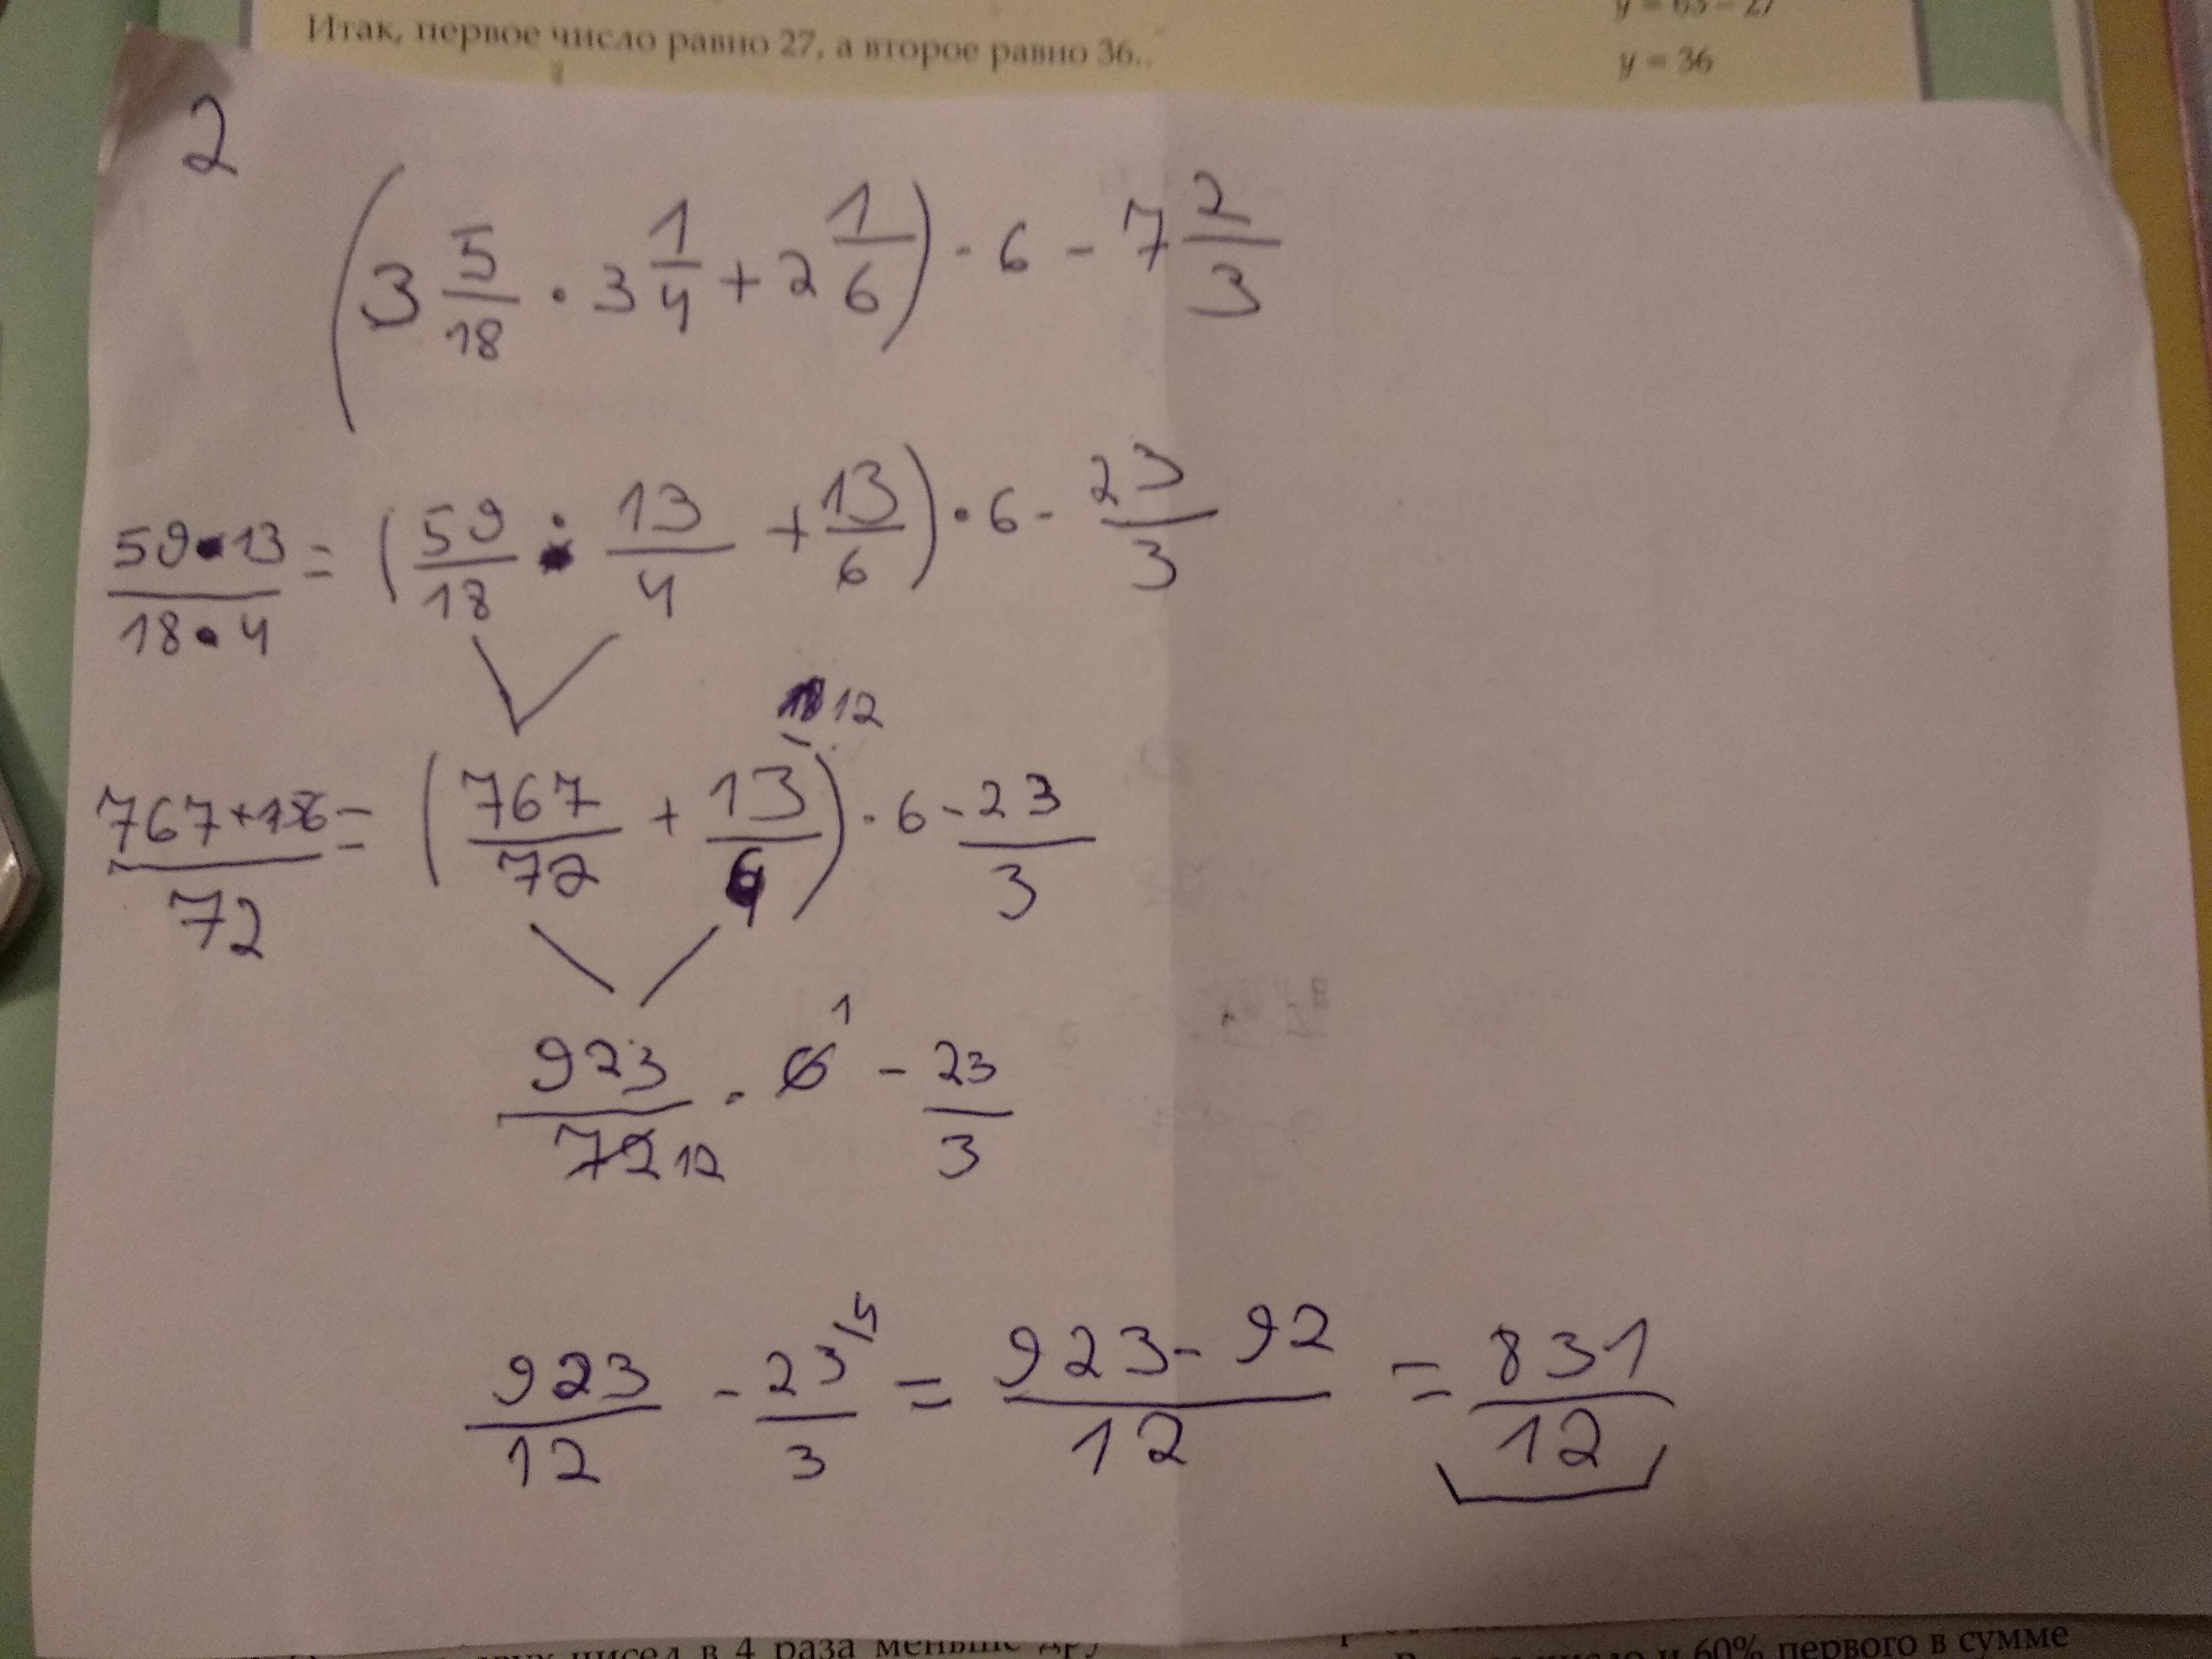 Итак, первое число равно 27, а второе равно 36.
y = 63 - 27
y = 36
2
(3 5/18 · 3 1/4 + 2 1/6) · 6 - 7 2/3
59·13/18·4 = (59/18 : 13/4 + 13/6) · 6 - 23/3
12
767+156/72 = (767/72 + 13/6) · 6 - 23/3
1
923/72 12 · 6 - 23/3
923/12 - 23/3 /4 = 923-92/12 = 831/12
чисел в 4 раза меньше
число и 60% первого в сумме